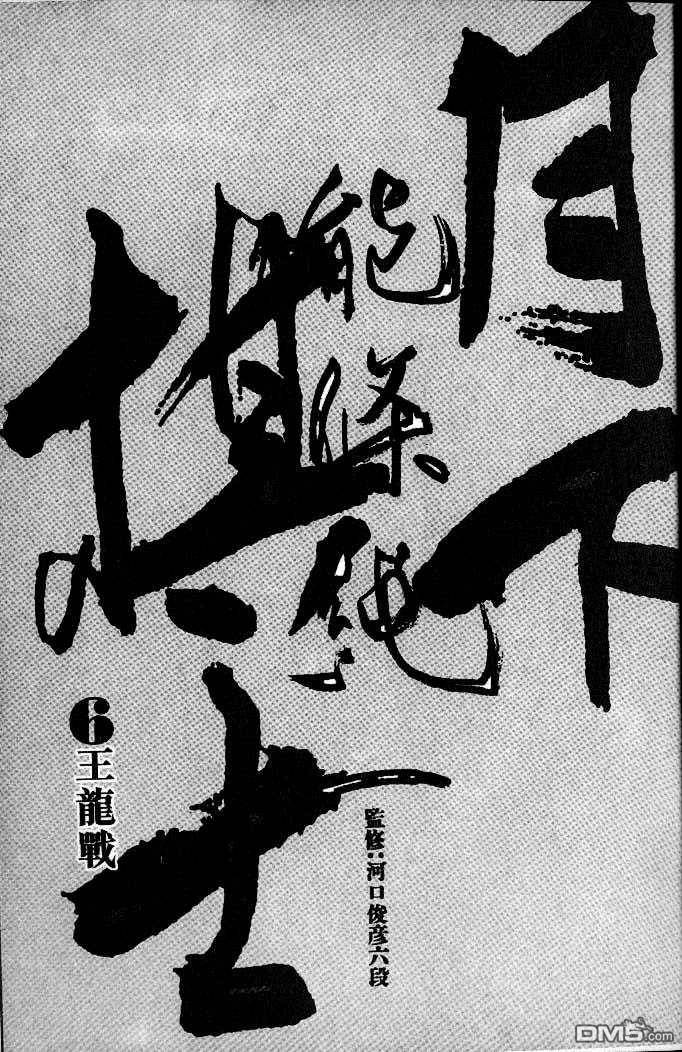 月下
棋士
能條純一
6
王龍戰
監修:河口俊彦六段
DM5.com